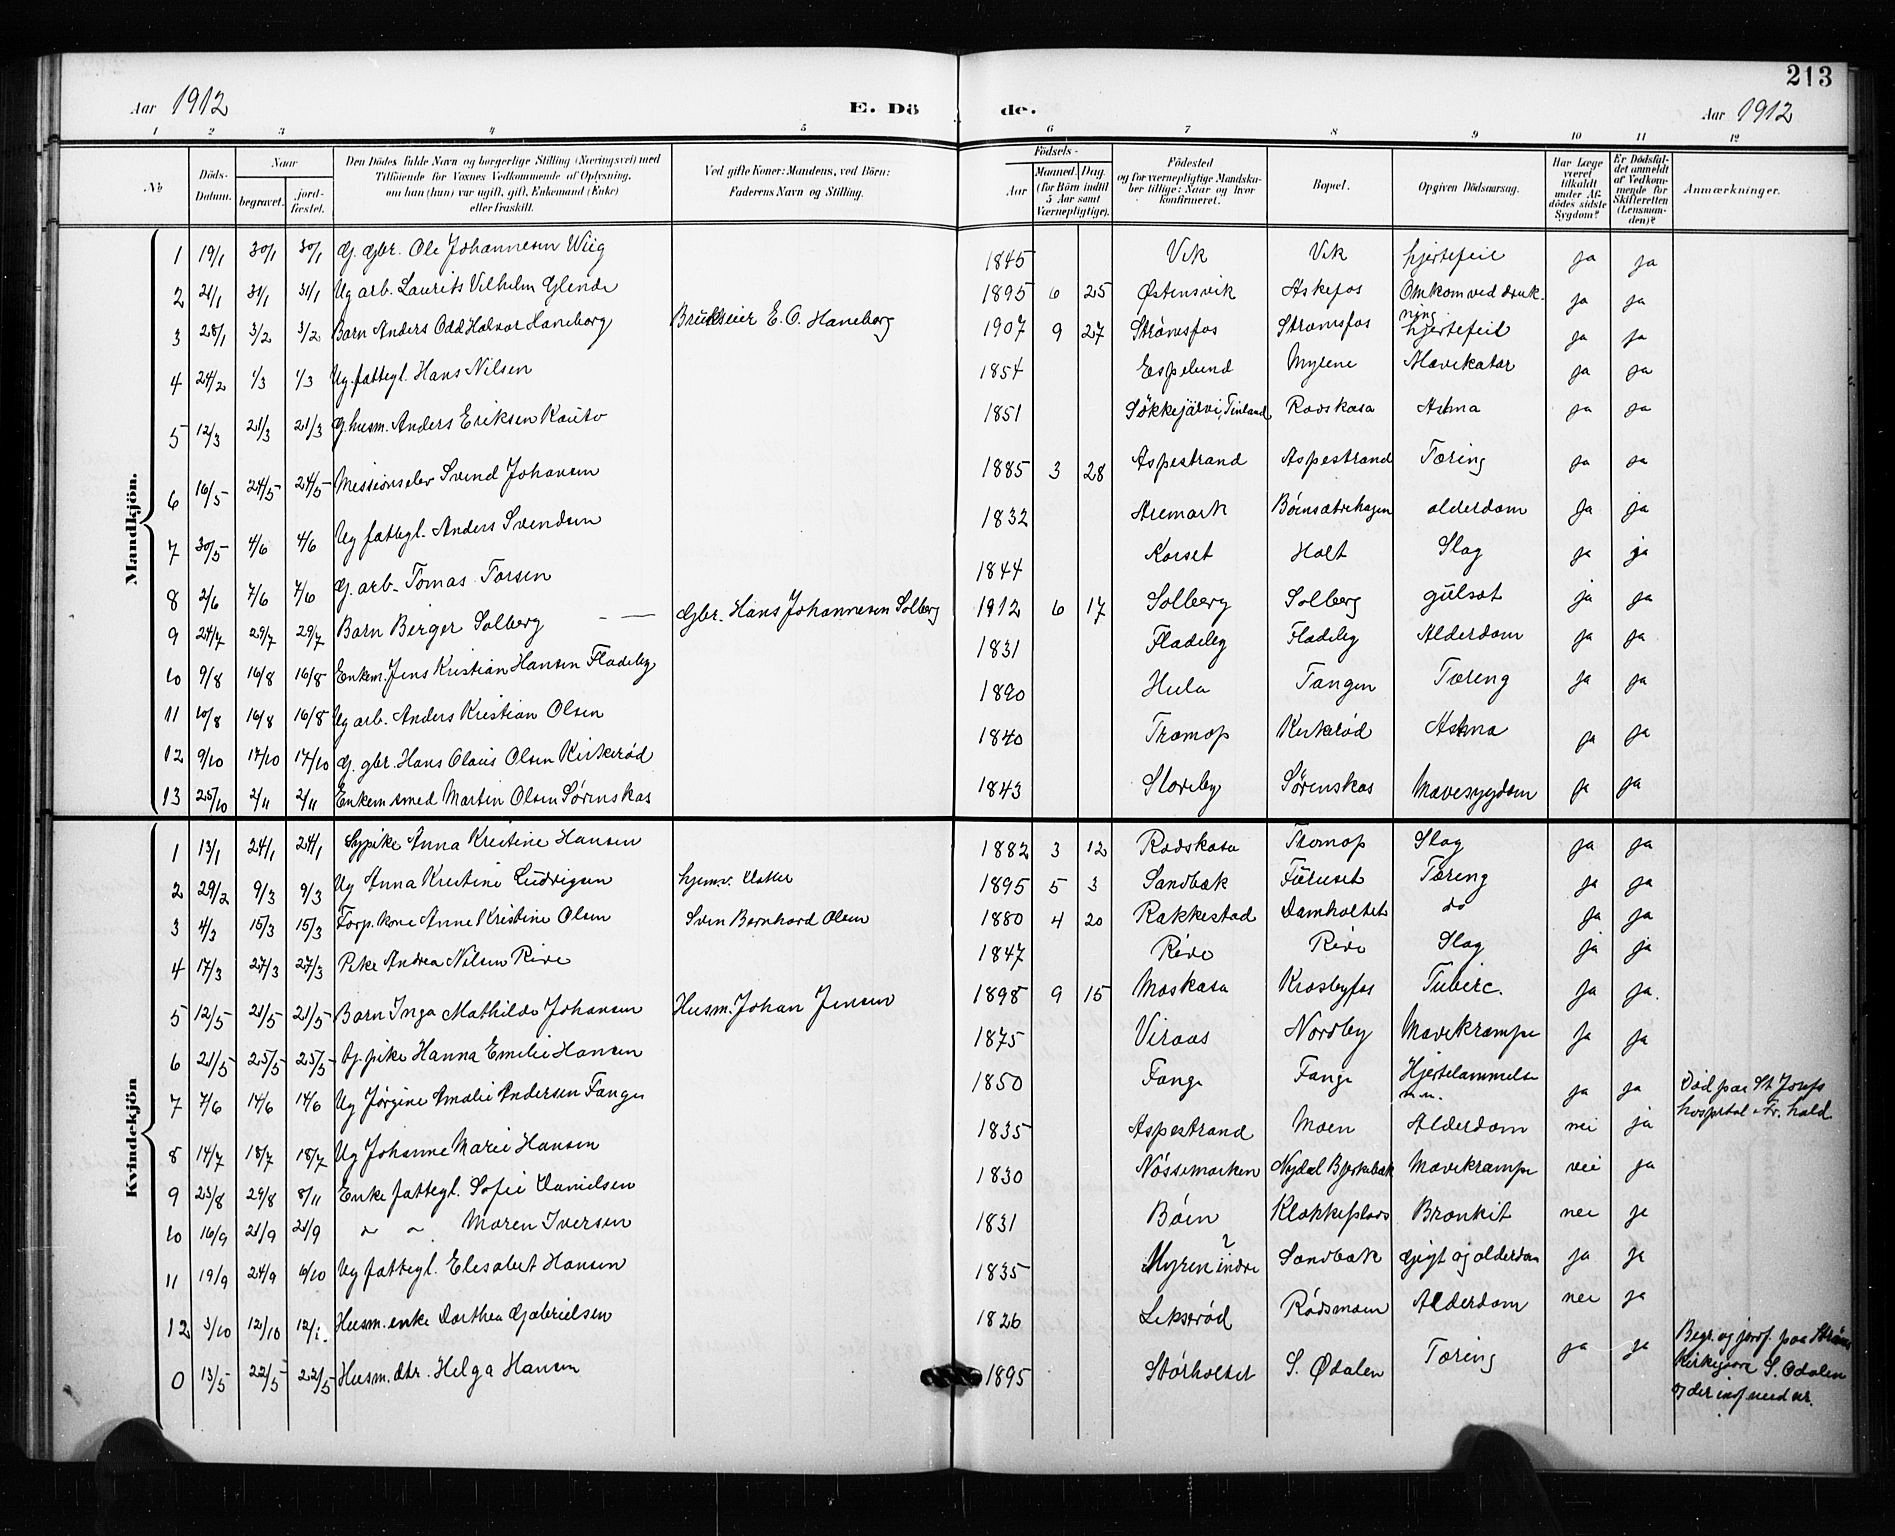 213
Aar 1912 E. Dö de. Aar 1912
1 2 3 4 5 6 7 8 9 10 11 12
No Döds-Datum. Naar begravet. jordfæstet. Den Dödes fulde Navn og borgerlige Stilling (Næringsvei) med Tilföiende for Voxnes Vedkommende af Oplysning, om han (hun) var ugift, gift, Enkemand (Enke) eller fraskilt. Ved gifte Koner: Mandens, ved Börn: Faderens Navn og Stilling. Födsels- Aar Maaned. Dag. (for Börn indtil 5 Aar samt Værnepligtige). Födested og for værnepligtige Mandskaber tillige: Naar og hvor konfirmeret. Bopæl. Opgiven Dödsaarsag. Har Læge været tilkaldt under Afdödes sidste Sygdom? Er Dödsfaldet anmeldt af Vedkommende for Skifteretten (Lensmanden)? Anmærkninger.
Mandkjön.
1 19/1 30/1 30/1 G. gbr. Ole Johannesen Wiig 1845 Vik Vik hjertefeil ja ja
2 21/1 31/1 31/1 Ug arb. Laurits Vilhelm Glende 1895 6 25 Østensvik Askefos Omkom ved drukning ja ja
3 28/1 3/2 3/2 Barn Anders Odd Halvor Haneborg Brukseier E. O. Haneborg 1907 9 27 Strømsfos Strømsfos hjertefeil ja ja
4 24/2 1/3 1/3 Ug. fattegl. Hans Nilsen 1854 Espelund Myrene Mavekatar ja ja
5 12/3 21/3 21/3 G. husm. Anders Eriksen Kauto 1851 Sökkejärvi, Finland Rødskasa Astma ja ja
6 16/5 24/5 24/5 Missionselev Svend Johansen 1885 3 28 Aspestrand Aspestrand Tæring ja ja
7 30/5 4/6 4/6 Ug fattegl. Anders Svendsen 1832 Aremark Bøensætrehagen alderdom ja ja
8 2/6 7/6 7/6 G. arb. Tomas Torsen 1844 Korset Holt Slag ja ja
9 24/7 29/7 29/7 Barn Birger Solberg — — Gbr. Hans Johannesen Solberg 1912 6 17 Solberg Solberg gulsot ja ja
10 9/8 16/8 16/8 Enkem. Jens Kristian Hansen Fladeby 1831 Fladeby Fladeby Alderdom ja ja
11 10/8 16/8 16/8 Ug arb. Anders Kristian Olsen 1890 Hula Tangen Tæring ja ja
12 9/10 17/10 17/10 G. gbr. Hans Olaus Olsen Kirkerød 1840 Tramop Kirkerød Astma ja ja
13 25/10 2/11 2/11 Enkem smed Martin Olsen Sørenskas 1843 Storeby Sørenskas Mavesygdom ja ja
Kvindekjön
1 13/1 24/1 24/1 Sypike Anna Kristine Hansen 1882 3 12 Rødskasa Tramop Slag ja ja
2 29/2 9/3 9/3 Ug Anna Kristine Ludvigsen hjemv. datter 1895 5 3 Sandbæk Furuset Tæring ja ja
3 4/3 15/3 15/3 Forp. kone Anne Kristine Olsen Sven Bernhard Olsen 1880 4 20 Rakkestad Damholtet do ja ja
4 17/3 27/3 27/3 Pike Andrea Nilsen Rive 1847 Rive Rive Slag ja ja
5 12/5 21/5 21/5 Barn Inga Mathilde Johansen Husm. Johan Jensen 1898 9 15 Moskasa Krosbyfos Tuberc. ja ja.
6 21/5 25/5 25/5 Tj. pike Hanna Emilie Hansen 1875 Viraas Nordby Mavekrampe ja ja
7 7/6 14/6 14/6 Ug Jørgine Amalie Andersen Fange 1850 Fange Fange Hjertelammelse m.m. ja ja Død paa St. Josefs hospital Fr. hald
8 14/7 18/7 18/7 Ug Johanne Marie Hansen 1835 Aspestrand Moen Alderdom nei ja
9 23/8 29/8 8/11 Enke fattegl. Sofie Danielsen 1830 Nøssemarken Nydal Bjerkebæk Mavekrampe nei ja
10 16/9 21/9 21/9 " " Maren Iversen 1831 Bøen Klokkeplads Bronkit nei ja
11 19/9 24/9 6/10 Ug fattegl. Elesabet Hansen 1835 Myren indre Sandbæk gigt og alderdom ja ja
12 3/10 12/10 Husm. enke Dorthea Gabrielsen 1826 Lekserød Rødsmoen Alderdom nei ja
0 13/5 22/5 22/5 Husm. dtr. Helga Hansen 1895 Størholtet S. Ødalen Tæring ja ja Begr. og jordf. paa Strøm Kirkegaard S. Odalen og der inf med nr.